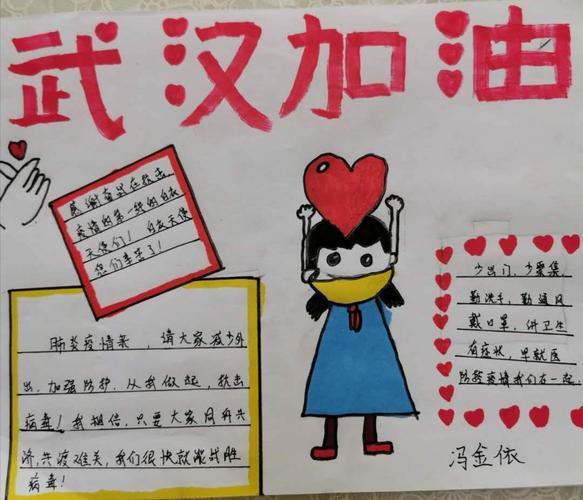 武汉加油
感谢奋斗在抗击
疫情的第一线的白衣
天使们！白衣天使
您们辛苦了！
少出门，少聚集
勤洗手，勤通风
戴口罩，讲卫生
有症状，早就医
防控疫情我们在一起
肺炎疫情来，请大家减少外
出，加强防护，从我做起，抗击
病毒！我相信，只要大家同舟共
济，共渡难关，我们很快就能战胜
病毒！
冯金依